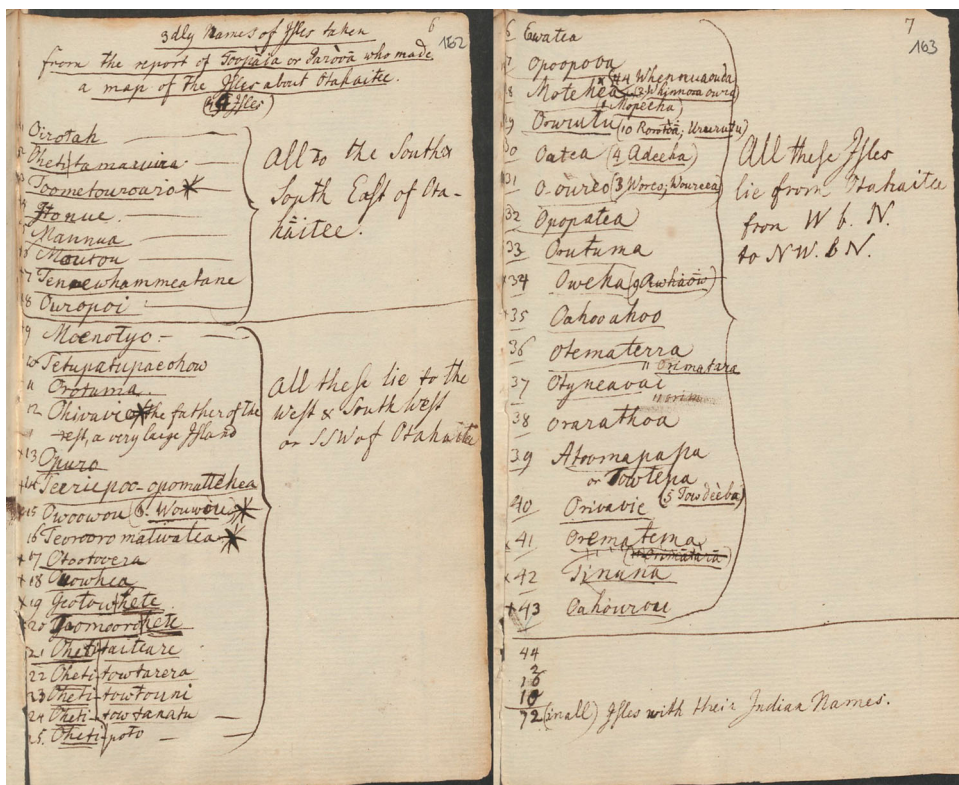 6
162
3dly Names of Isles taken
from the report of Toopāia or Parōvā who made
a map of the Isles about Otahaitee.
Oirotah
Oheti tamaruira
Toometouroaro
Honue.
Mannua
Moutou
7 Tenewhammeatane
8 Ouropoi
All to the South &
South East of Ota-
häitee.
9 Moenotyo
10 Tetupatupaeohow
11 Orotuma.
12 Ohivavie the father of the
rest, a very large Island
13 Opuro
14 Teeriepoo-opomattehea
15 Owoowou (8. Wouwou)
16 Teorooro mativatea
17 Otootovera
18 Ouowhea
19 Geotowhete
20 Toomoorohete
21 Oheti taiteare
22 Oheti-towtarera
23 Oheti-towtouni
24 Oheti-towtanatu
25. Oheti-poto
All these lie to the
west & South West
or SSW of Otahaitee
7
163
6 Ewatea
7 Opoopooa
8 Motehea
4 Whennuaouda
(3. Whinnova oura
Mopecha)
29 Oowrutu (10 Rorotoā; Urururutu)
30 Oatea (4 Adeeha)
31 O-ourèo (3 Woreo; Woureea)
32 Opopatea
33 Orutuma
34 Oweha (9 Awhāow)
35 Oahooahoo
36 Otematerra
11 Orimatara
37 Otyneavai
38 Orarathoa
39 Atoomapapa
or Towtepa
(5 Towdèeba)
40 Orivavie
41 Orematema
42 Tinuna
43 Oahourou
All these Isles
lie from Otahaitee
from W b. N.
to NW. b N.
44
72 (in all) Isles with their Indian Names.